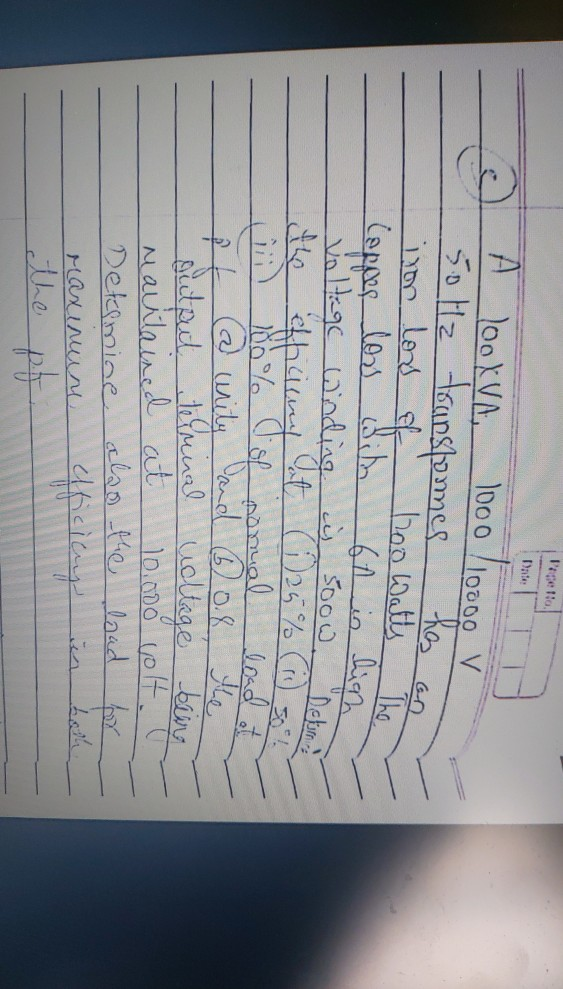 Page No.
Date
C A 100KVA, 1000/10000 V
50HZ transformer has an
iron loss of 1200 watts The
Copper loss with 6A in high
voltage winding is 500W Determine
the efficiency at (i) 25% (ii) 50%
(iii) 100% of normal load at
pf (a) unity and (b) 0.8 the
output terminal voltage being
maintained at 10.000 volt.
Determine also the load for
maximum efficiency in both
the pf.